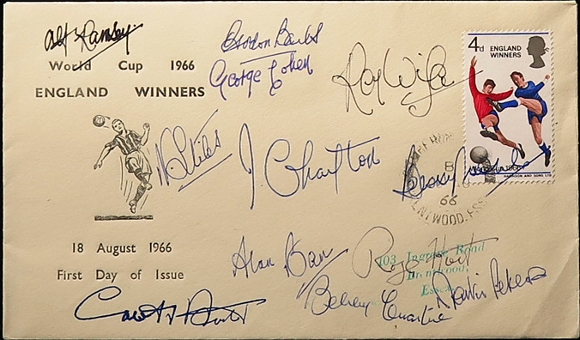 Alf Ramsey.
Gordon Banks
World Cup 1966
George Cohen
Ray Wilson
ENGLAND WINNERS
4d ENGLAND WINNERS
N Stiles
J. Charlton
Bobby Moore
HARRISON AND SONS LTD
66
BRENTWOOD, ESSEX
18 August 1966
First Day of Issue
Alan Ball
Roger Hunt
103, Ingrave Road
Brentwood,
Essex
Bobby Charlton
Martin Peters
Geoff Hurst